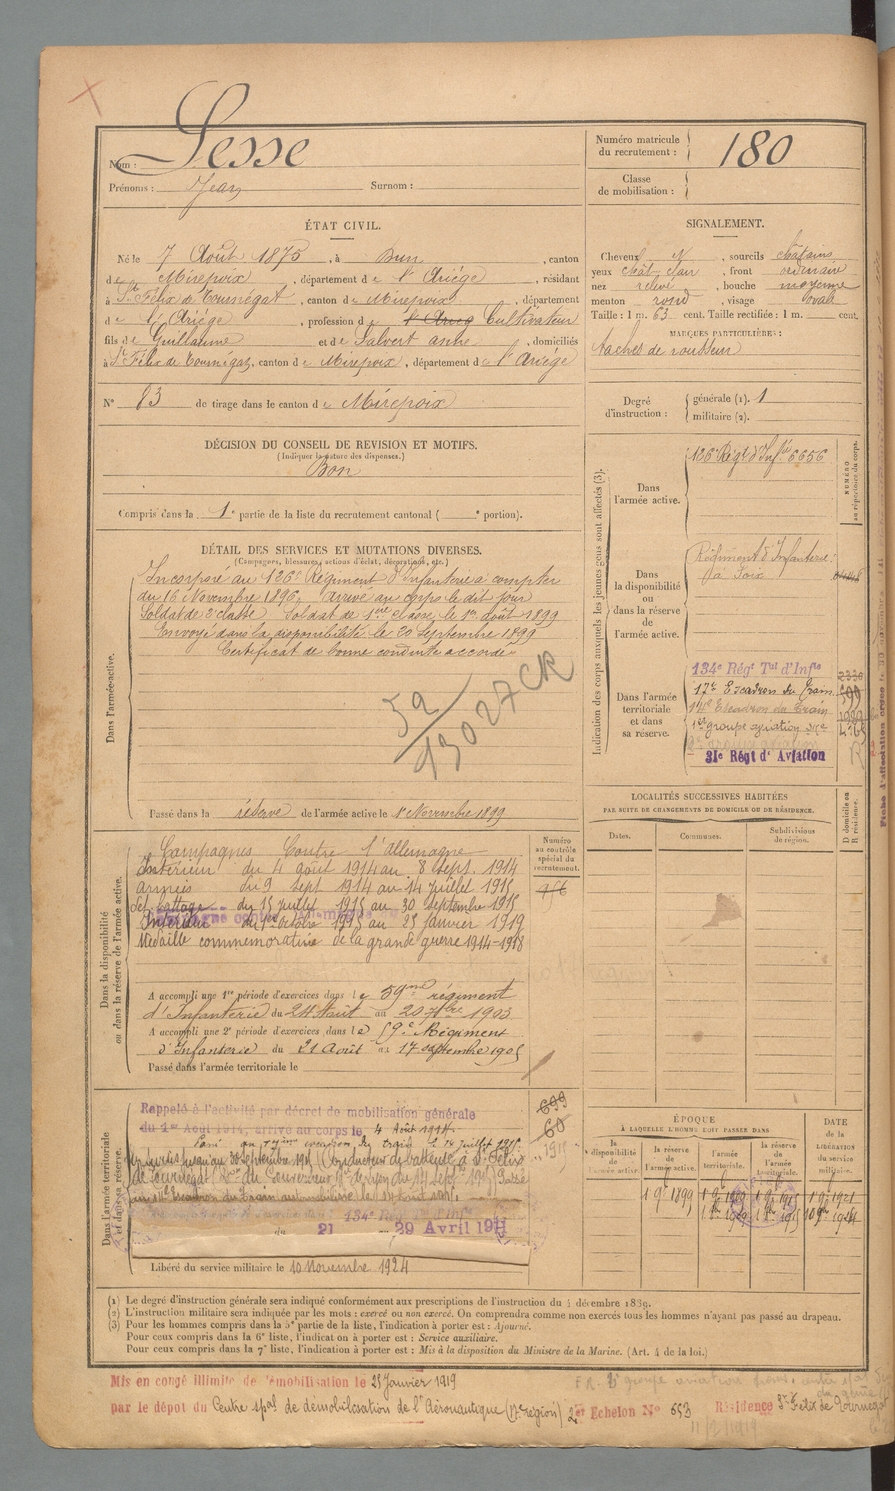 Nom : Lesse
Prénoms : Jean Surnom :
Numéro matricule du recrutement : 180
Classe de mobilisation :
ÉTAT CIVIL.
Né le 7 Août 1875, à Dun, canton
de Mirepoix, département de l'Ariége, résidant
à St Félix de Tournégat, canton de Mirepoix, département
de l'Ariége, profession de Cultivateur
fils de Guillaume et de Salvert anne, domiciliés
à St Félix de Tournégat, canton de Mirepoix, département de l'Ariége
N° 83 de tirage dans le canton de Mirepoix
SIGNALEMENT.
Cheveux N, sourcils châtains
yeux chât clair, front ordinaire
nez relevé, bouche moyenne
menton rond, visage ovale
Taille : 1 m. 63 cent. Taille rectifiée : 1 m. cent.
MARQUES PARTICULIÈRES :
taches de rousseur
Degré d'instruction : générale (1). 1
militaire (2).
DÉCISION DU CONSEIL DE REVISION ET MOTIFS.
(Indiquer la nature des dispenses.)
Bon
Compris dans la 1e partie de la liste du recrutement cantonal ( e portion).
DÉTAIL DES SERVICES ET MUTATIONS DIVERSES.
(Campagnes, blessures, actions d'éclat, décorations, etc.)
Dans l'armée active.
Incorporé au 126e Régiment d'Infanterie à compter
du 16 Novembre 1896, arrivé au corps le dit jour
Soldat de 2e classe. Soldat de 1re classe le 1er août 1899
Envoyé dans la disponibilité le 20 Septembre 1899
Certificat de bonne conduite accordé
Passé dans la réserve de l'armée active le 1er Novembre 1899
Indication des corps auxquels les jeunes gens sont affectés (3).
NUMÉRO au répertoire du corps.
Dans l'armée active.
126e Régt d'Infie 6656
Dans la disponibilité ou dans la réserve de l'armée active.
Régiment d'Infanterie
à Foix
Dans l'armée territoriale et dans sa réserve.
134e Régt Tal d'Infie
17e Escadron du Train
14e Escadron du Train
1er groupe aviation
31e Régt d'Aviation
LOCALITÉS SUCCESSIVES HABITÉES
PAR SUITE DE CHANGEMENTS DE DOMICILE OU DE RÉSIDENCE.
Dates. Communes. Subdivisions de région.
D domicile ou R résidence.
Dans la disponibilité ou dans la réserve de l'armée active.
Numéro au contrôle spécial du recrutement.
Campagnes Contre l'allemagne
Intérieur du 4 août 1914 au 8 sept. 1914
armées du 9 sept 1914 au 14 juillet 1915
det. battage du 15 juillet 1915 au 30 septembre 1915
Intérieur du 1er octobre 1915 au 25 janvier 1919
Médaille commémorative de la grande guerre 1914-1918
A accompli une 1re période d'exercices dans le 59me régiment
d'Infanterie du 24 Août au 20 7bre 1903
A accompli une 2e période d'exercices dans le 59e Régiment
d'Infanterie du 21 Août au 17 septembre 1905
Passé dans l'armée territoriale le
Dans l'armée territoriale et dans sa réserve.
Rappelé à l'activité par décret de mobilisation générale
du 1er Août 1914, arrivé au corps le 4 Août 1914.
134e Régt Tal d'Infie
du 21 29 Avril 1911
Libéré du service militaire le 10 Novembre 1924
699
60
ÉPOQUE
À LAQUELLE L'HOMME DOIT PASSER DANS
la disponibilité de l'armée active.
la réserve de l'armée active.
l'armée territoriale.
la réserve de l'armée territoriale.
DATE de la LIBÉRATION du service militaire.
(1) Le degré d'instruction générale sera indiqué conformément aux prescriptions de l'instruction du 4 décembre 1889.
(2) L'instruction militaire sera indiquée par les mots : exercé ou non exercé. On comprendra comme non exercés tous les hommes n'ayant pas passé au drapeau.
(3) Pour les hommes compris dans la 5e partie de la liste, l'indication à porter est : Ajourné.
Pour ceux compris dans la 6e liste, l'indication à porter est : Service auxiliaire.
Pour ceux compris dans la 7e liste, l'indication à porter est : Mis à la disposition du Ministre de la Marine. (Art. 4 de la loi.)
Mis en congé illimité de démobilisation le 25 Janvier 1919
par le dépôt du Centre spal de démobilisation de l'Aéronautique (17e région) 2e Echelon N° 653 Résidence St Félix de Tournegat